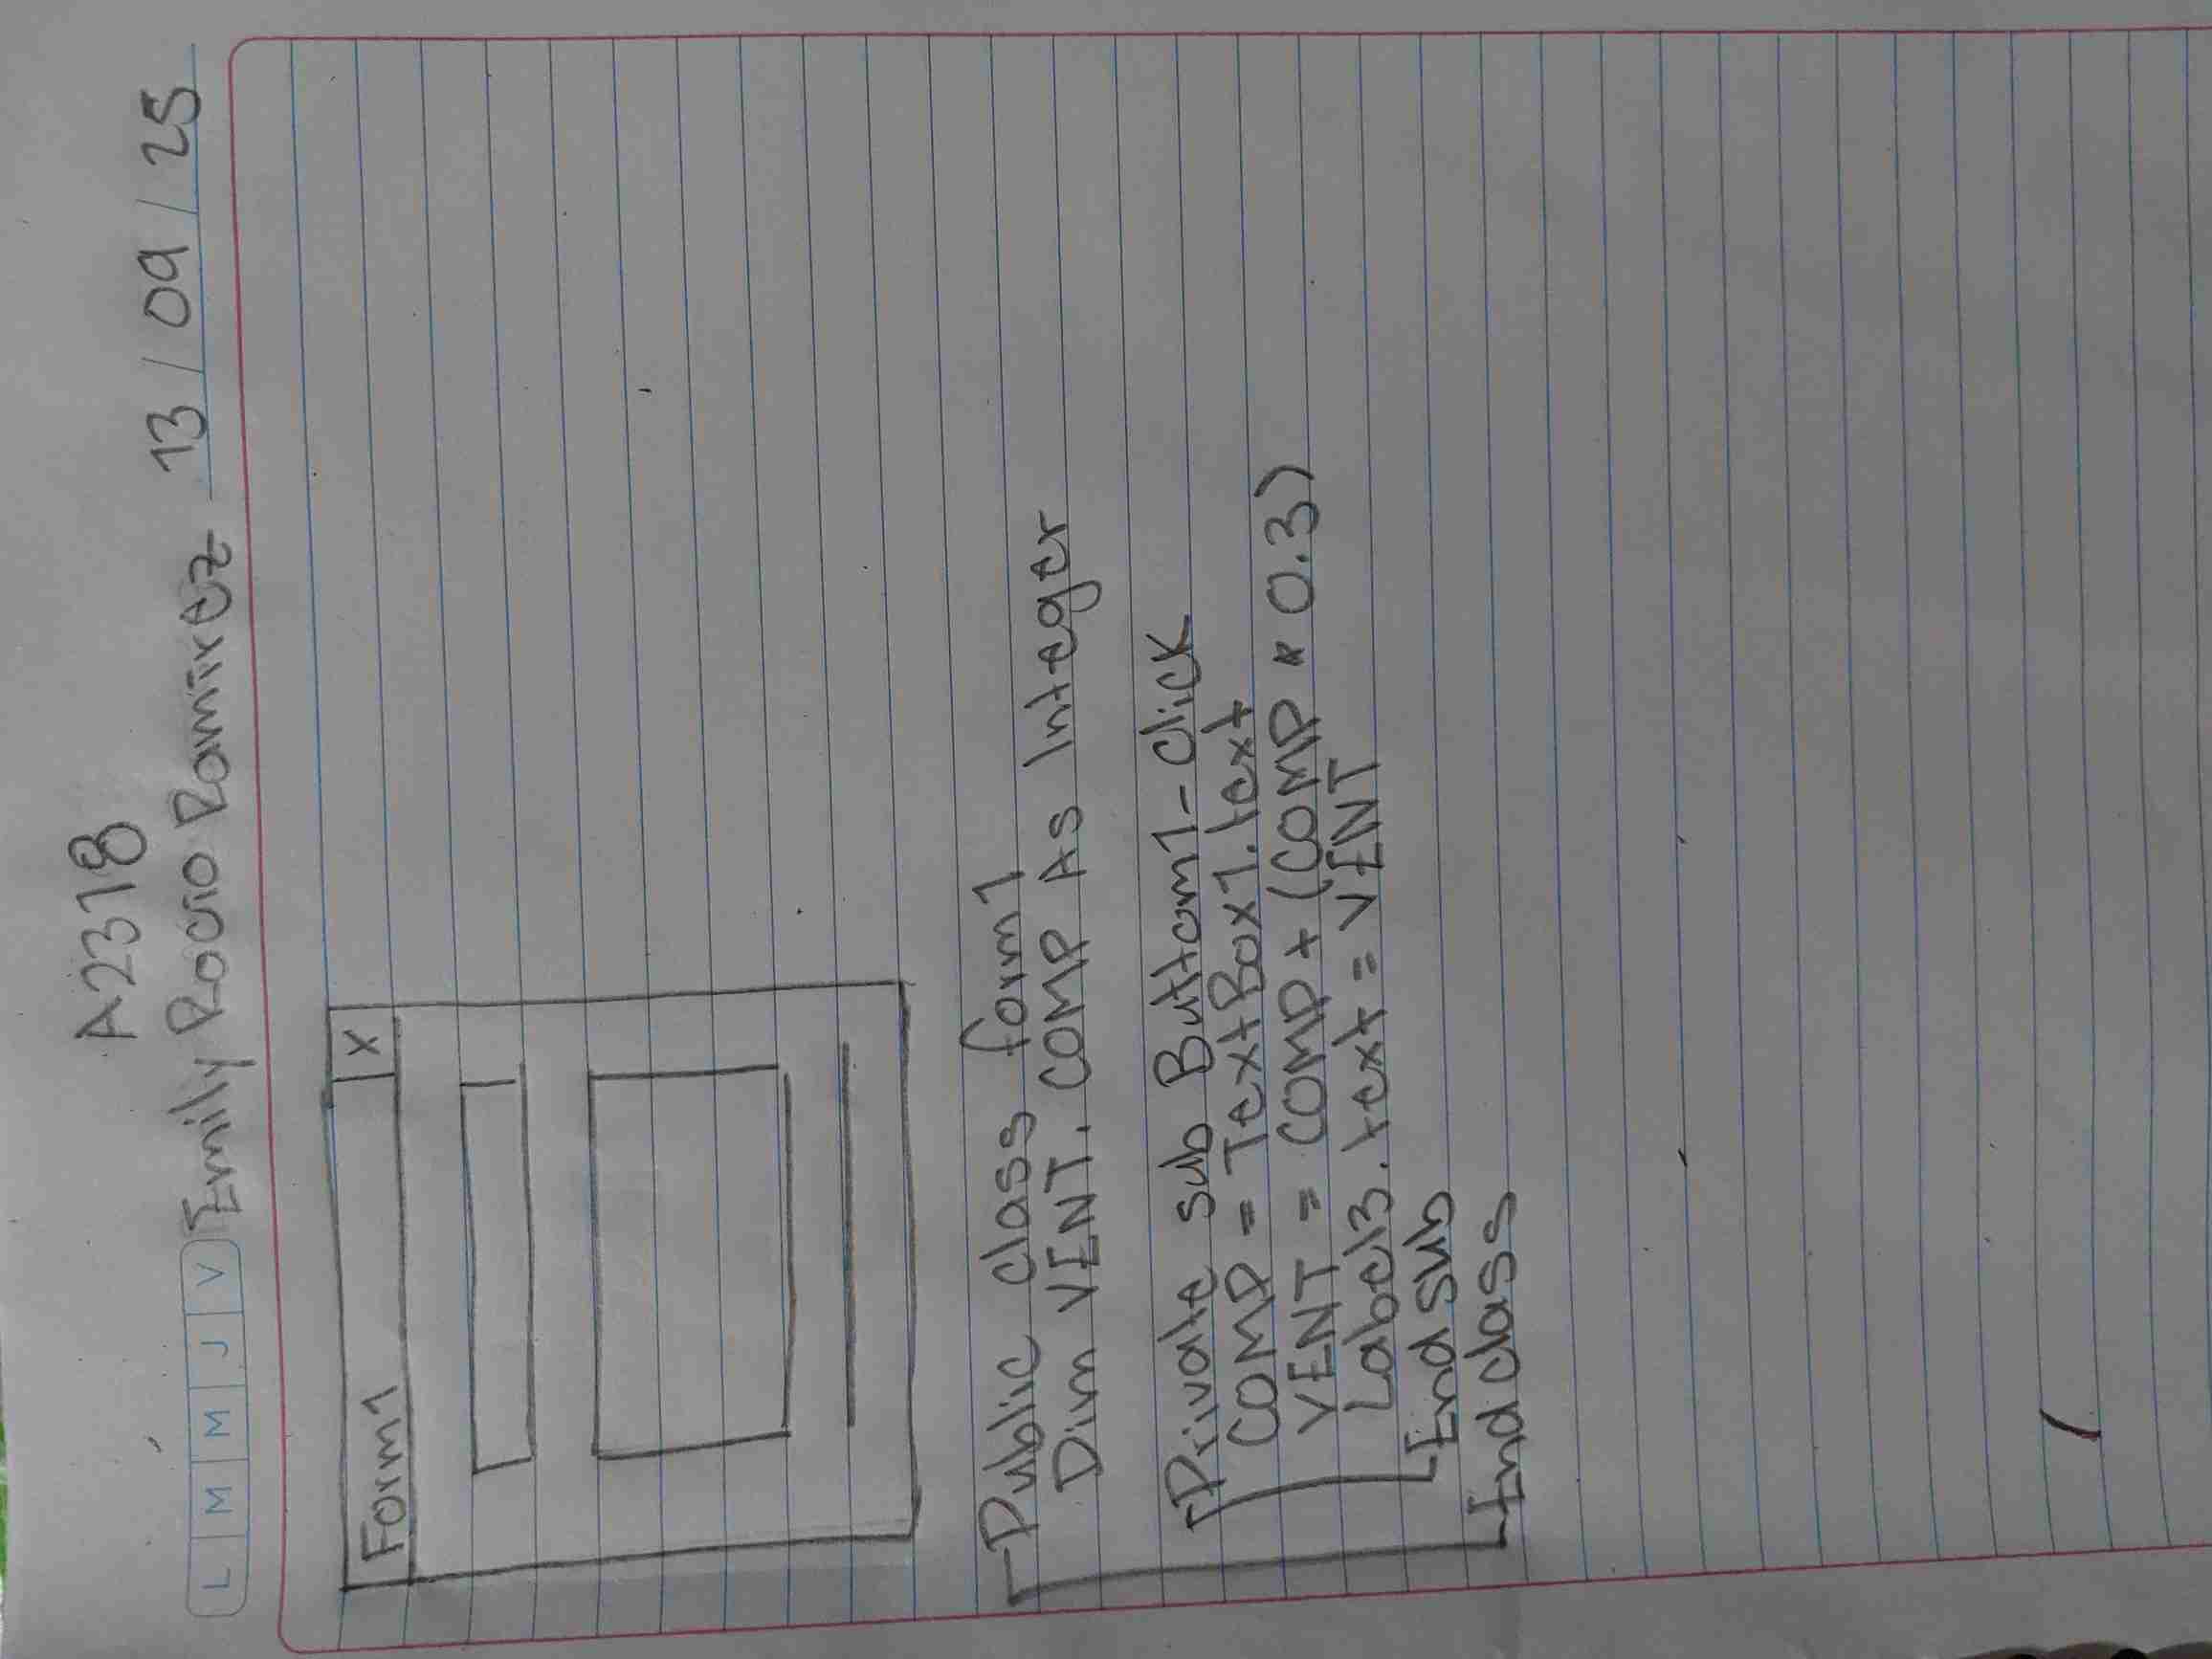 A2318
L M M J V Emily Rocio Ramirez 13 / 09 / 25
Form1 X
Public class form1
Dim VENT. COMP As Integer
Private sub Buttom1-click
COMP = TextBox1.text
VENT = COMP + (COMP * 0.3)
Label3.text = VENT
End sub
End class